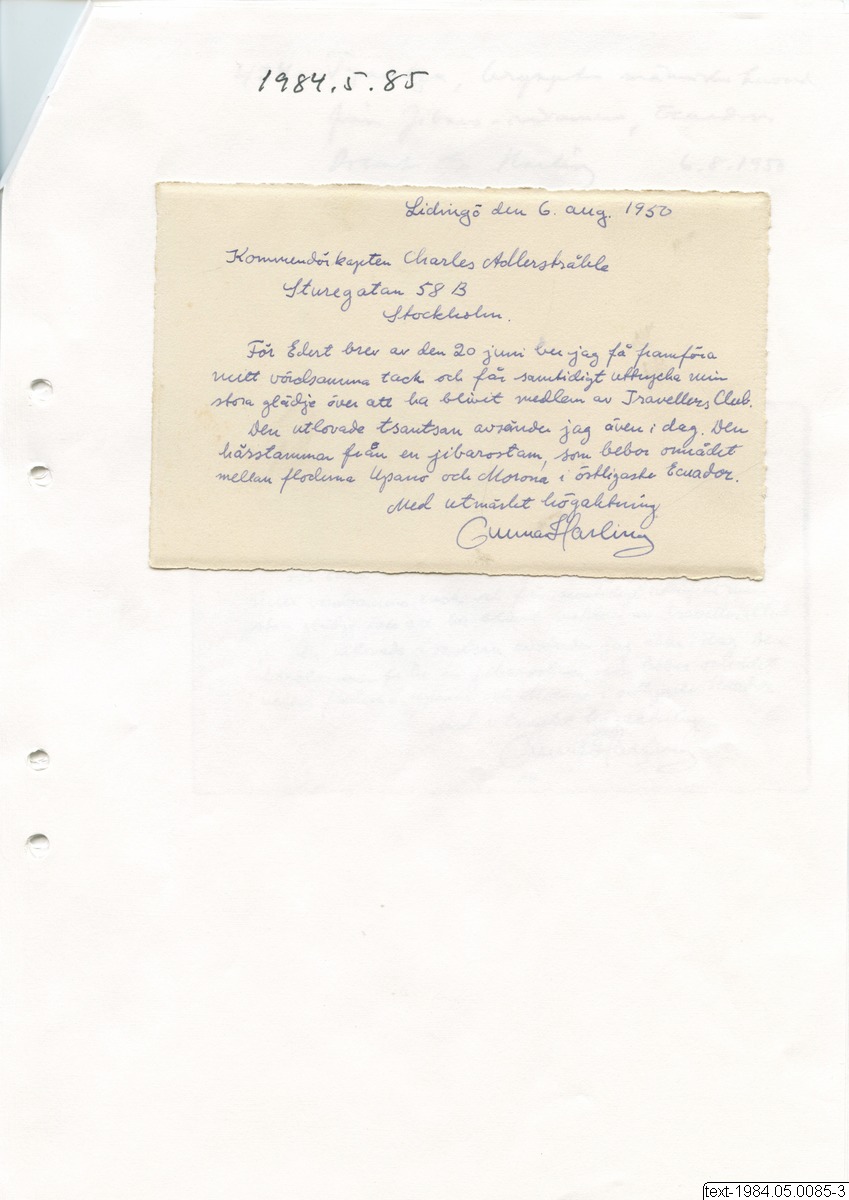 1984.5.85
Lidingö den 6. aug. 1950
Kommendörkapten Charles Adlerstråhle
Sturegatan 58 B
Stockholm.
För Edert brev av den 20 juni ber jag få framföra
mitt vördsamma tack och får samtidigt uttrycka min
stora glädje över att ha blivit medlem av Travellers Club.
Den utlovade tsantsan avsänder jag även i dag. Den
härstammar från en jibarostam, som bebor området
mellan floderna Upano och Morona i östligaste Ecuador.
Med utmärkt högaktning
Gunnar Harling
text-1984.05.0085-3